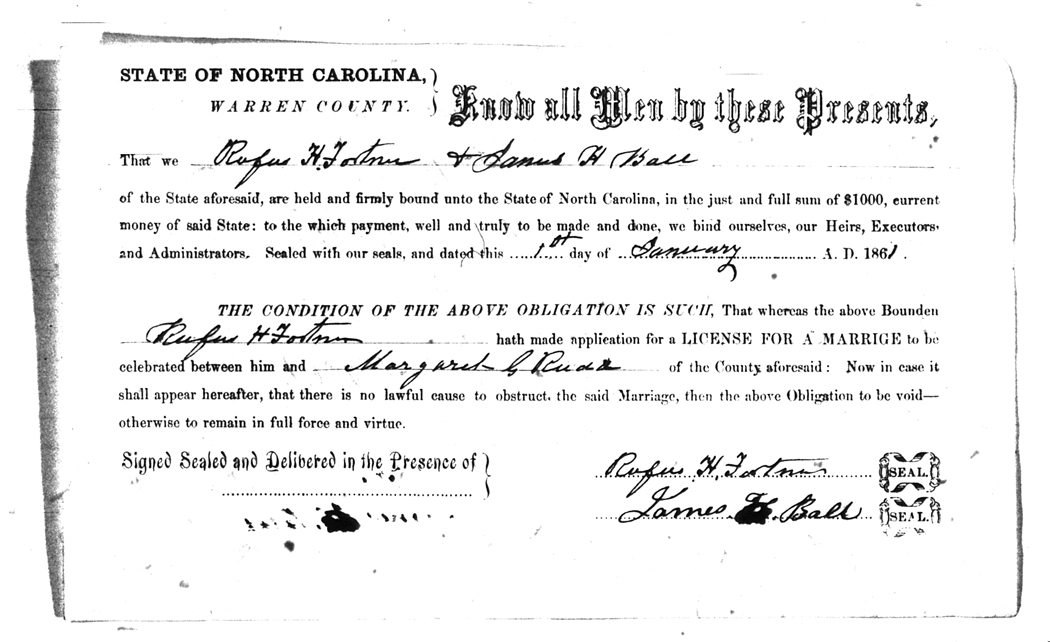 STATE OF NORTH CAROLINA,
WARREN COUNTY.
Know all Men by these Presents,
That we Rufus H. Fortner & James H Ball
of the State aforesaid, are held and firmly bound unto the State of North Carolina, in the just and full sum of $1000, current
money of said State: to the which payment, well and truly to be made and done, we bind ourselves, our Heirs, Executors
and Administrators. Sealed with our seals, and dated this 1st day of January A. D. 1861.
THE CONDITION OF THE ABOVE OBLIGATION IS SUCH, That whereas the above Bounden
Rufus H Fortner hath made application for a LICENSE FOR A MARRIGE to be
celebrated between him and Margaret G Rudd of the County aforesaid: Now in case it
shall appear hereafter, that there is no lawful cause to obstruct. the said Marriage, then the above Obligation to be void—
otherwise to remain in full force and virtue.
Signed Sealed and Delibered in the Presence of
Rufus H. Fortner SEAL.
James H. Ball SEAL.